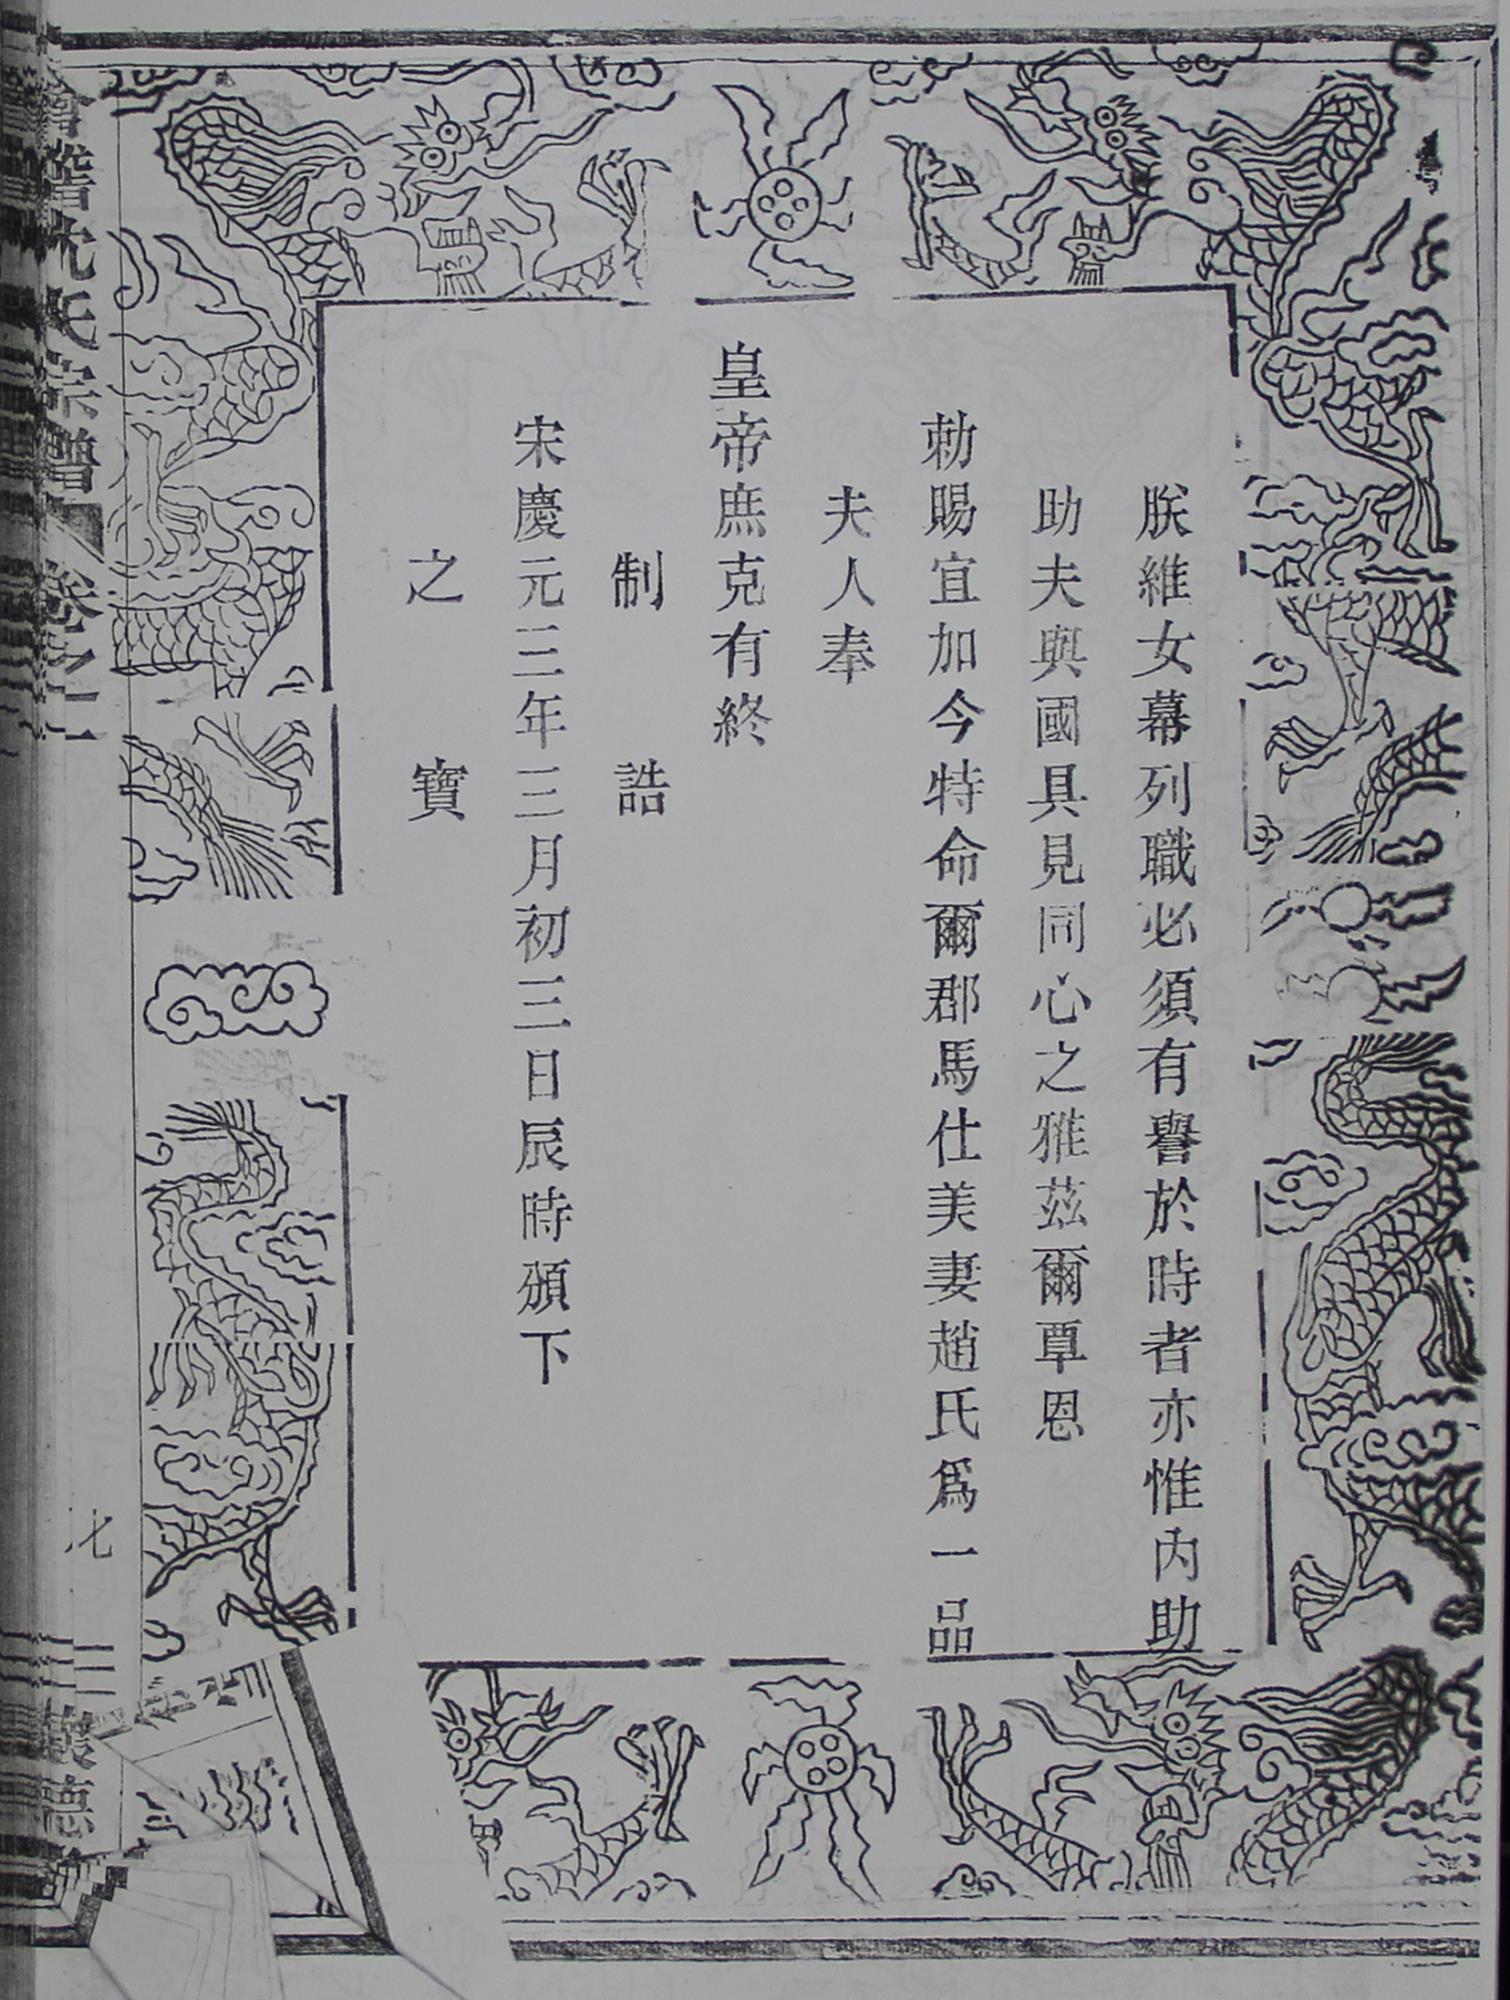 朕維女幕列職必須有譽於時者亦惟內助
助夫與國具見同心之雅茲爾覃恩
勅賜宜加今特命爾郡馬仕美妻趙氏爲一品
夫人奉
皇帝庶克有終
制誥
宋慶元三年三月初三日辰時頒下
之寶
沈氏宗譜 卷之一